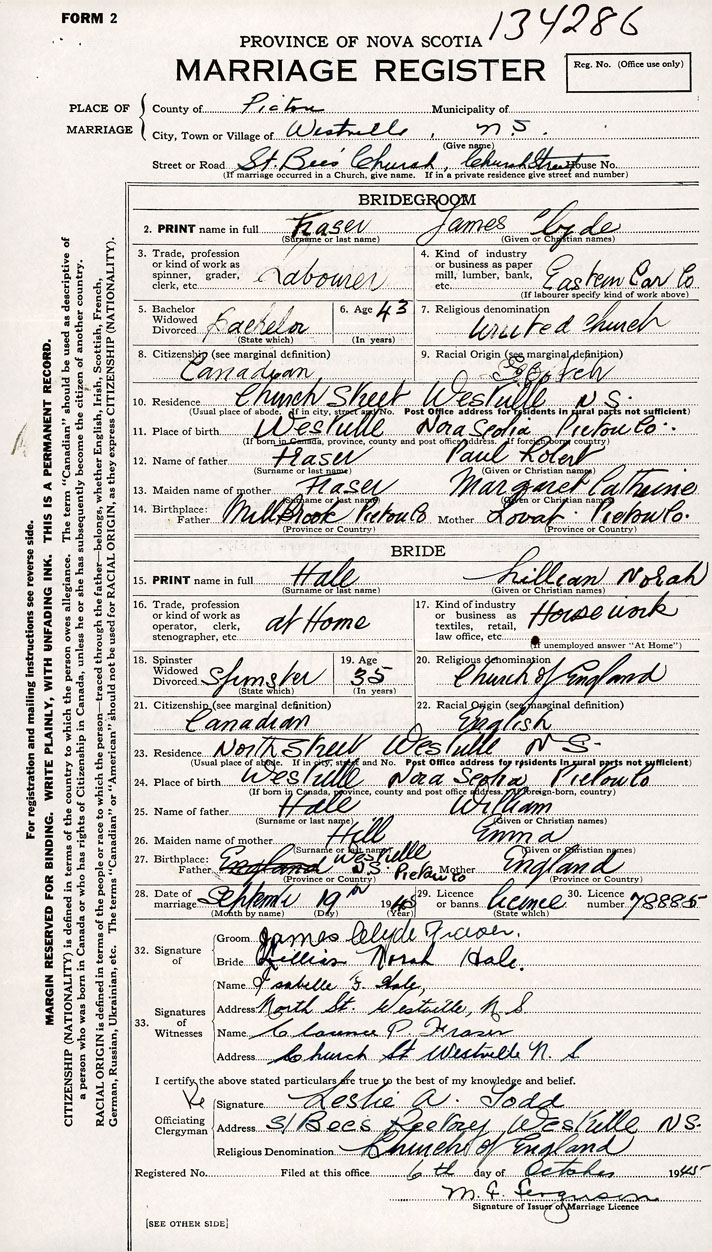 FORM 2
134286
PROVINCE OF NOVA SCOTIA
MARRIAGE REGISTER
Reg. No. (Office use only)
PLACE OF MARRIAGE
County of Pictou Municipality of
City, Town or Village of Westville, N.S.
(Give name)
Street or Road St. Bees' Church, Church Street House No.
(If marriage occurred in a Church, give name. If in a private residence give street and number)
BRIDEGROOM
2. PRINT name in full Fraser James Clyde
(Surname or last name) (Given or Christian names)
3. Trade, profession or kind of work as spinner, grader, clerk, etc. Labourer
4. Kind of industry or business as paper mill, lumber, bank, etc. Eastern Car Co
(If labourer specify kind of work above)
5. Bachelor Widowed Divorced Bachelor (State which)
6. Age 43 (In years)
7. Religious denomination United Church
8. Citizenship (see marginal definition) Canadian
9. Racial Origin (see marginal definition) Scotch
10. Residence Church Street Westville N.S.
(Usual place of abode. If in city, street and No. Post Office address for residents in rural parts not sufficient)
11. Place of birth Westville Nova Scotia Pictou Co.
(If born in Canada, province, county and post office address. If foreign born, country)
12. Name of father Fraser Paul Robert
(Surname or last name) (Given or Christian names)
13. Maiden name of mother Fraser Margaret Catherine
(Surname or last name) (Given or Christian names)
14. Birthplace: Father Millbrook Pictou Co Mother Lovat Pictou Co.
(Province or Country) (Province or Country)
BRIDE
15. PRINT name in full Hale Lillian Norah
(Surname or last name) (Given or Christian names)
16. Trade, profession or kind of work as operator, clerk, stenographer, etc. at Home
17. Kind of industry or business as textiles, retail, law office, etc. Housework
(If unemployed answer "At Home")
18. Spinster Widowed Divorced Spinster (State which)
19. Age 35 (In years)
20. Religious denomination Church of England
21. Citizenship (see marginal definition) Canadian
22. Racial Origin (see marginal definition) English
23. Residence North Street Westville N S.
(Usual place of abode. If in city, street and No. Post Office address for residents in rural parts not sufficient)
24. Place of birth Westville Nova Scotia, Pictou Co
(If born in Canada, province, county and post office address. If foreign born, country)
25. Name of father Hale William
(Surname or last name) (Given or Christian names)
26. Maiden name of mother Hill Emma
(Surname or last name) (Given or Christian names)
27. Birthplace: Father England Westville N.S. Pictou Co Mother England
(Province or Country) (Province or Country)
28. Date of marriage September 19th 1945
(Month by name) (Day) (Year)
29. Licence or banns. licence (State which)
30. Licence number 78885
32. Signature of
Groom James Clyde Fraser.
Bride Lillian Norah Hale.
33. Signatures of Witnesses
Name Isabelle F. Hale,
Address North St. Westville, N.S.
Name Clarence P. Fraser
Address Church St Westville N. S
I certify the above stated particulars are true to the best of my knowledge and belief.
Officiating Clergyman
Signature Leslie A. Todd
Address St Bees Rectory Westville NS.
Religious Denomination Church of England
Registered No. Filed at this office 6th day of October 1945
M. F. Ferguson
Signature of Issuer of Marriage Licence
[SEE OTHER SIDE]
For registration and mailing instructions see reverse side.
MARGIN RESERVED FOR BINDING. WRITE PLAINLY, WITH UNFADING INK. THIS IS A PERMANENT RECORD.
CITIZENSHIP (NATIONALITY) is defined in terms of the country to which the person owes allegiance. The term "Canadian" should be used as descriptive of
a person who was born in Canada or who has rights of Citizenship in Canada, unless he or she has subsequently become the citizen of another country.
RACIAL ORIGIN is defined in terms of the people or race to which the person—traced through the father—belongs, whether English, Irish, Scottish, French,
German, Russian, Ukrainian, etc. The terms "Canadian" or "American" should not be used for RACIAL ORIGIN, as they express CITIZENSHIP (NATIONALITY).